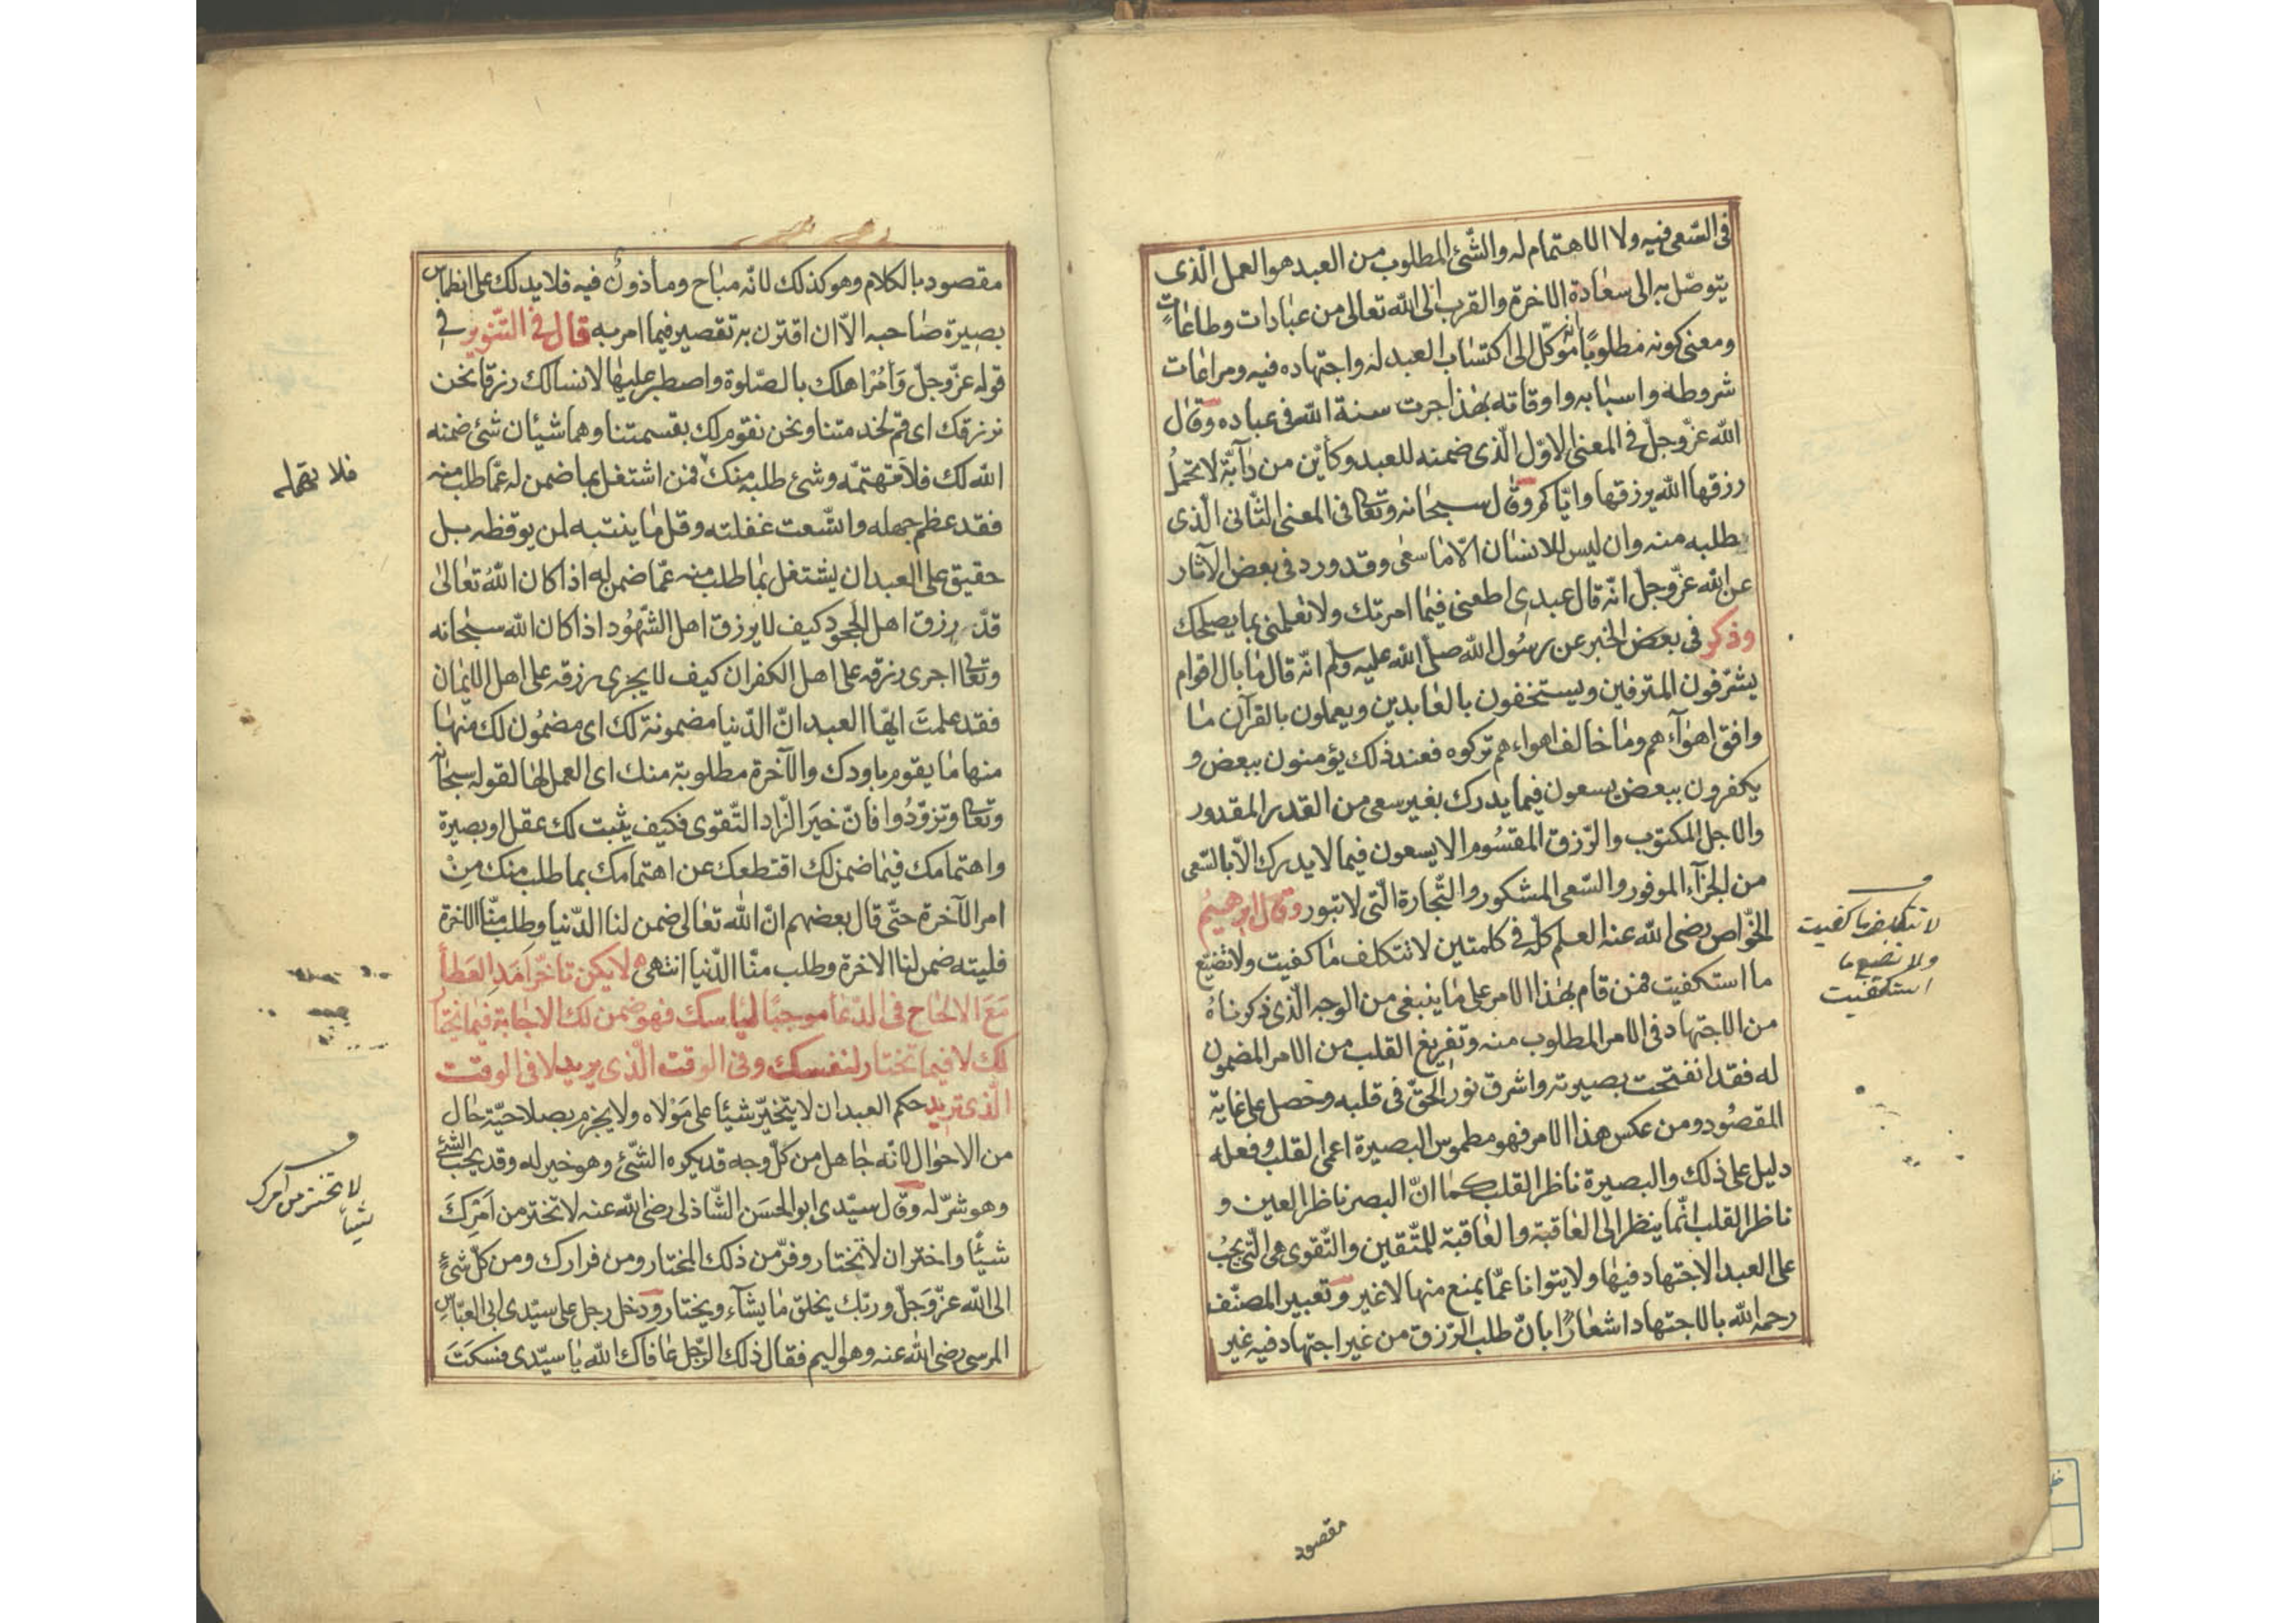 فى السّعى فيه ولا الاهتمام له والشّئ المطلوب من العبد هو العمل الّذى
يتوصّل به الى سعادة الاخرة والقرب الى الله تعالى من عبادات وطاعات
ومعنى كونه مطلوبًا انه موكّل الى اكتساب العبد له واجتهاده فيه ومراعات
شروطه واسبابه واوقاته بهذا جرت سنة الله فى عباده وقال
الله عزّ وجلّ فى المعنى الاوّل الّذى ضمنه للعبد وكأيّن من دآبّة لا تحملُ
رزقها الله يرزقها وايّاكم وقال سبحانه وتعالى فى المعنى الثّانى الّذى
طلبه منه وان ليس للانسان الّا ما سعى وقد ورد فى بعض الآثار
عن الله عزّ وجلّ انّه قال عبدى اطعنى فيما امرتك ولا تعلمنى بما يصلحك
وذكر فى بعض الخبر عن رسُول الله صلّى الله عليه وسلم انّه قال ما بال اقوام
يشرّفون المترفين ويستخفون بالعابدين ويعملون بالقرآن ما
وافق اهوآءهم وما خالف اهواءهم تركوه فعند ذلك يؤمنون ببعض و
يكفرون ببعض يسعون فيما يدرك بغير سعى من القدر المقدور
والاجل المكتوب والرّزق المقسُوم الا يسعون فيما لا يدرك الّا بالسّعى
من الجزآء الموفور والسّعى المشكور والتّجارة الّتى لا تبور وقال ابرهيمُ
الخوّاص رضى الله عنه العلم كلّه فى كلمتين لا تتكلف ما كفيت ولا تضيّع
ما استكفيت فمن قام بهذا الامر على ما ينبغى من الوجه الّذى ذكرناهُ
من الاجتهاد فى الامر المطلوب منه وتفريغ القلب من الامر المضمون
له فقد انفتحت بصيرته واشرق نور الحقّ فى قلبه وحصل على غاية
المقصُود ومن عكس هذا الامر فهو مطموس البصيرة اعمى القلب وفعله
دليل على ذلك والبصيرة ناظر القلب كما انّ البصر ناظر العين و
ناظر القلب انّما ينظر الى العاقبة والعاقبة للمتّقين والتّقوى هى الّتى يجبُ
على العبد الاجتهاد فيها ولا يتوانا عمّا يمنع منها لا غير وتعبير المصنّف
رحمه الله بالاجتهاد اشعارًا بانّ طلب الرّزق من غير اجتهاد فيه غير
لا تتكلف ما كفيت
ولا تضيع ما
استكفيت
مقصود
مقصود بالكلام وهو كذلك لانّه مباح ومأذونٌ فيه فلا يدلك على انطماس
بصيرة صاحبه الّا ان اقترن به تقصير فيما امر به قال فى التّنوير فى
قوله عزّ وجلّ وَأمُرْ اهلك بالصّلوة واصطبر عليها لا نسالك رزقا نحن
نرزقك اى قم لخدمتنا ونحن نقوم لك بقسمتنا وهما شيئان شئ ضمنه
الله لك فلا تهتمّه وشئ طلبه منك فمن اشتغل بما ضمن له عمّا طلب منه
فقد عظم جهله واتّسعت غفلته وقل ما ينتبه لمن يوقظه بل
حقيق على العبد ان يشتغل بما طلب منه عمّا ضمن له اذا كان اللهُ تعالىٰ
قدّر رزق اهل الجحود كيف لا يرزق اهل الشّهُود اذا كان الله سبحانه
وتعالى اجرى رزقه على اهل الكفران كيف لا يجرى رزقه على اهل الايمان
فقد علمتَ ايّها العبد انّ الدّنيا مضمونة لك اى مضمُون لك منها
منها ما يقوم باودك والآخرة مطلوبة منك اى العمل لها لقوله سبحانه
وتعالى وتزوّدُوا فانّ خيرَ الزّاد التّقوى فكيف يثبت لك عقل او بصيرة
واهتمامك فيما ضمن لك اقتطعك عن اهتمامك بما طلب منك مِنْ
امر الآخرة حتّى قال بعضهم انّ الله تعالى ضمن لنا الدّنيا وطلب منّا الاخرة
فليته ضمن لنا الاخرة وطلب منّا الدّنيا انتهى لا يكن تأخّر اَمَدِ العَطَأ
مَعَ الالحاح فى الدّعأ موجبًا ليأسك فهو ضمن لك الاجابة فيما يختار
لك لا فيما تختار لنفسك وفى الوقت الّذى يريد لا فى الوقت
الّذى تريد حكم العبد ان لا يتخيّر شيئا على مَوْلاه ولا يجزم بصلاحيّة حال
من الاحوال لانّه جاهل من كلّ وجه قد يكره الشّئ وهو خير له وقد يحبّ الشّئ
وهو شرّ له وقال سيّدى ابو الحسَن الشّاذلى رضى الله عنه لا تختر من اَمْرِكَ
شيئًا واختر ان لا تختار وفرّ من ذلك المختار ومن فرارك ومن كلّ شئٍ
الى الله عزّ وَجلّ وربّك يخلق ما يشآء ويختار ودخل رجل على سيّدى ابى العبّاس
المرسى رضى الله عنه وهو اليم فقال ذلك الرّجل عافاك الله يا سيّدى فسكتَ
لا تختر من امرك
شيئا